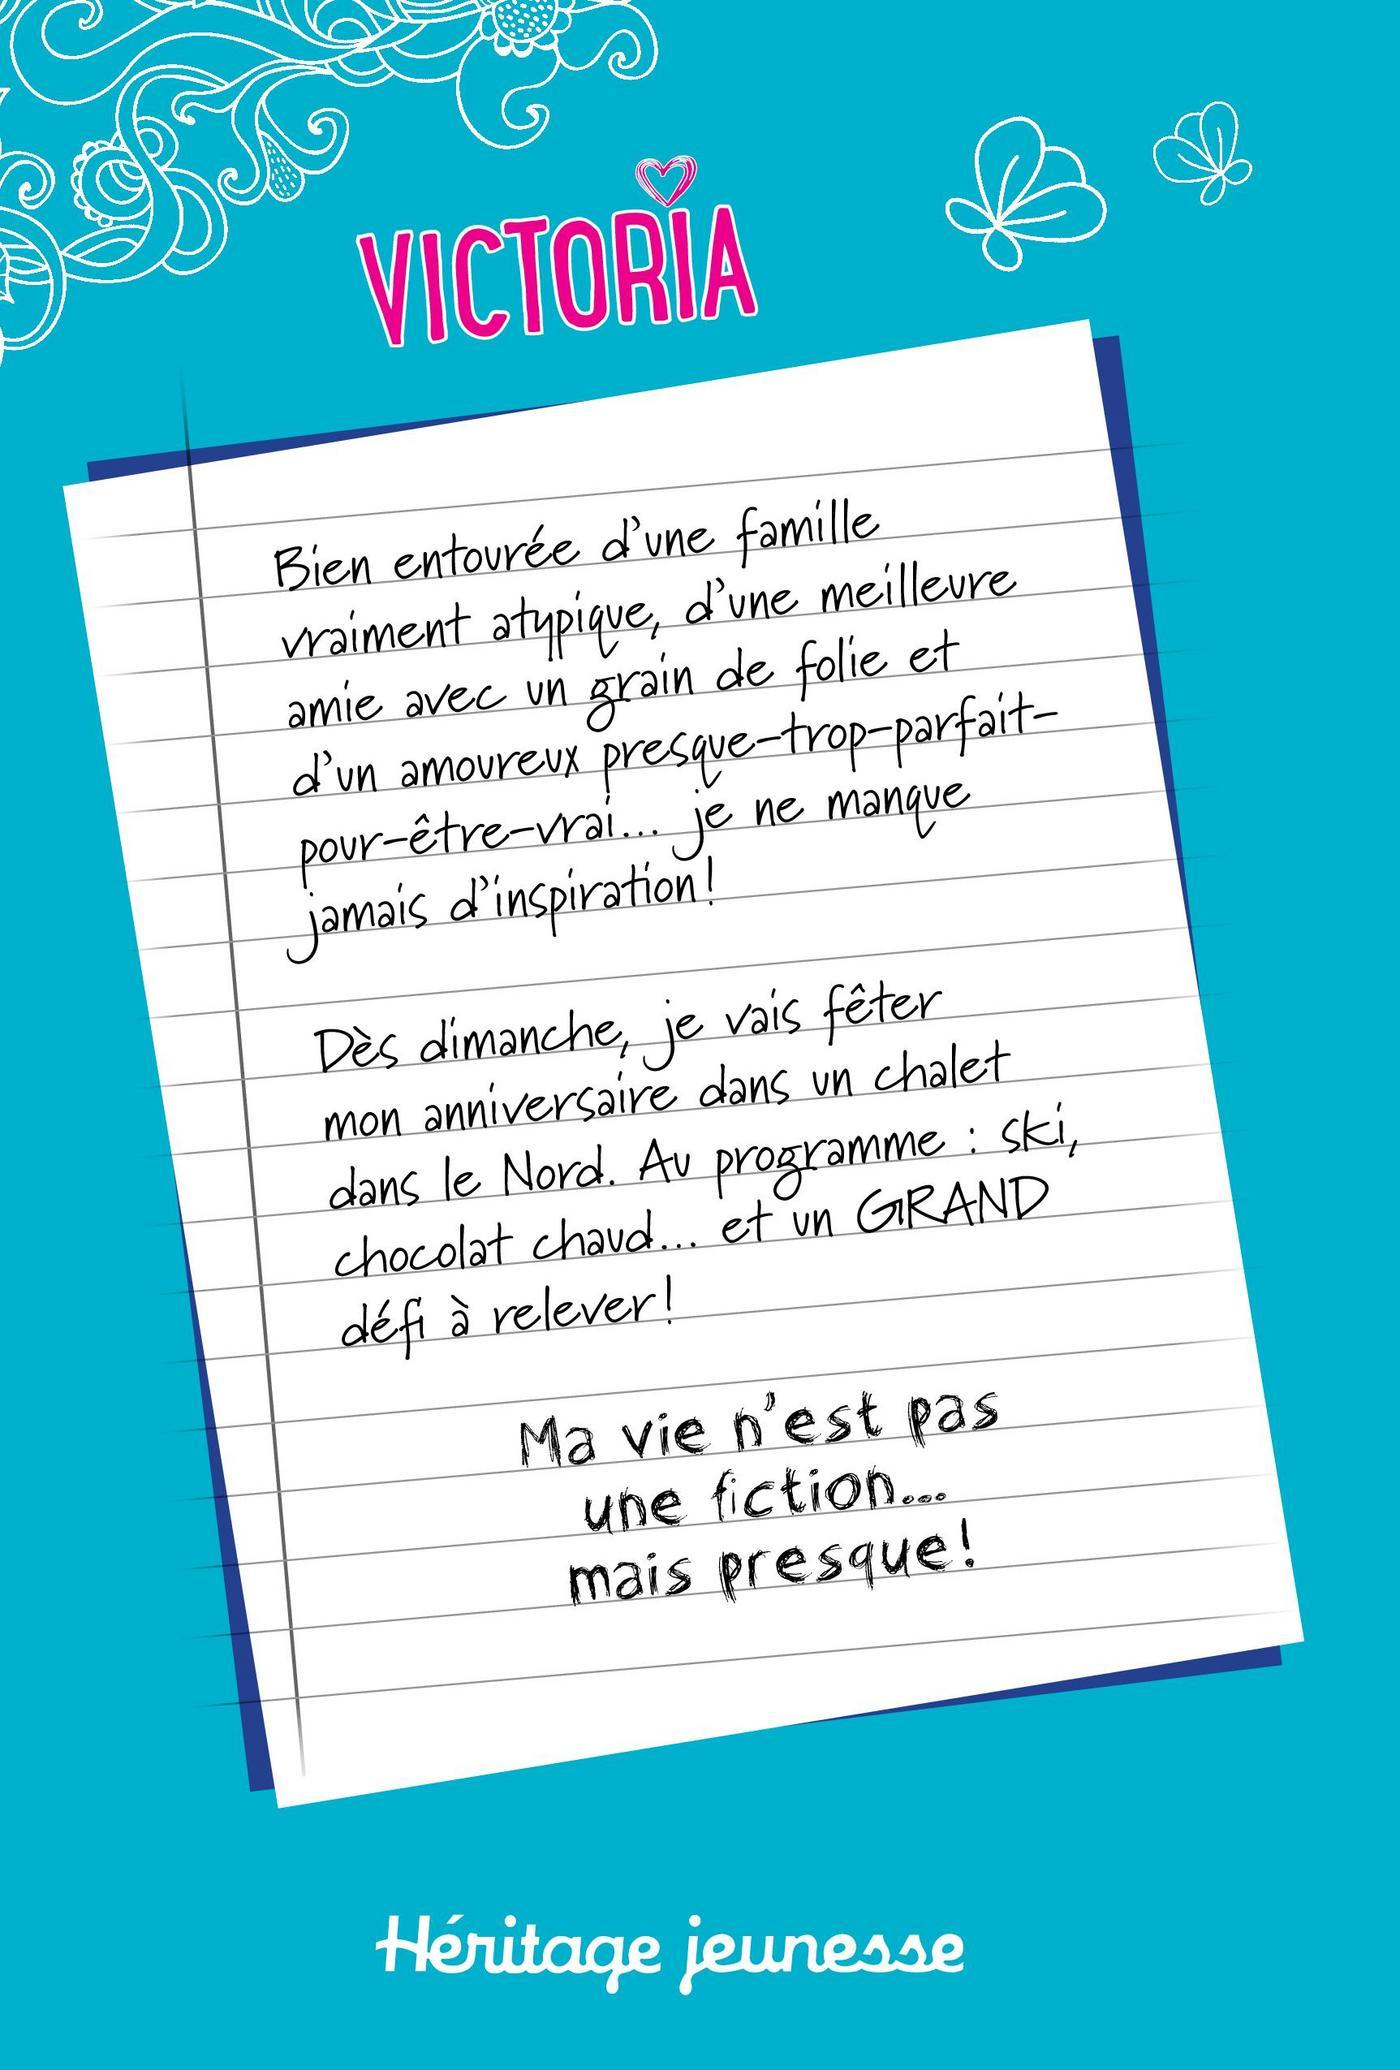 VICTORIA
Bien entourée d'une famille
vraiment atypique, d'une meilleure
amie avec un grain de folie et
d'un amoureux presque-trop-parfait-
pour-être-vrai... je ne manque
jamais d'inspiration!
Dès dimanche, je vais fêter
mon anniversaire dans un chalet
dans le Nord. Au programme : ski,
chocolat chaud... et un GRAND
défi à relever!
Ma vie n'est pas
une fiction...
mais presque!
Héritage jeunesse